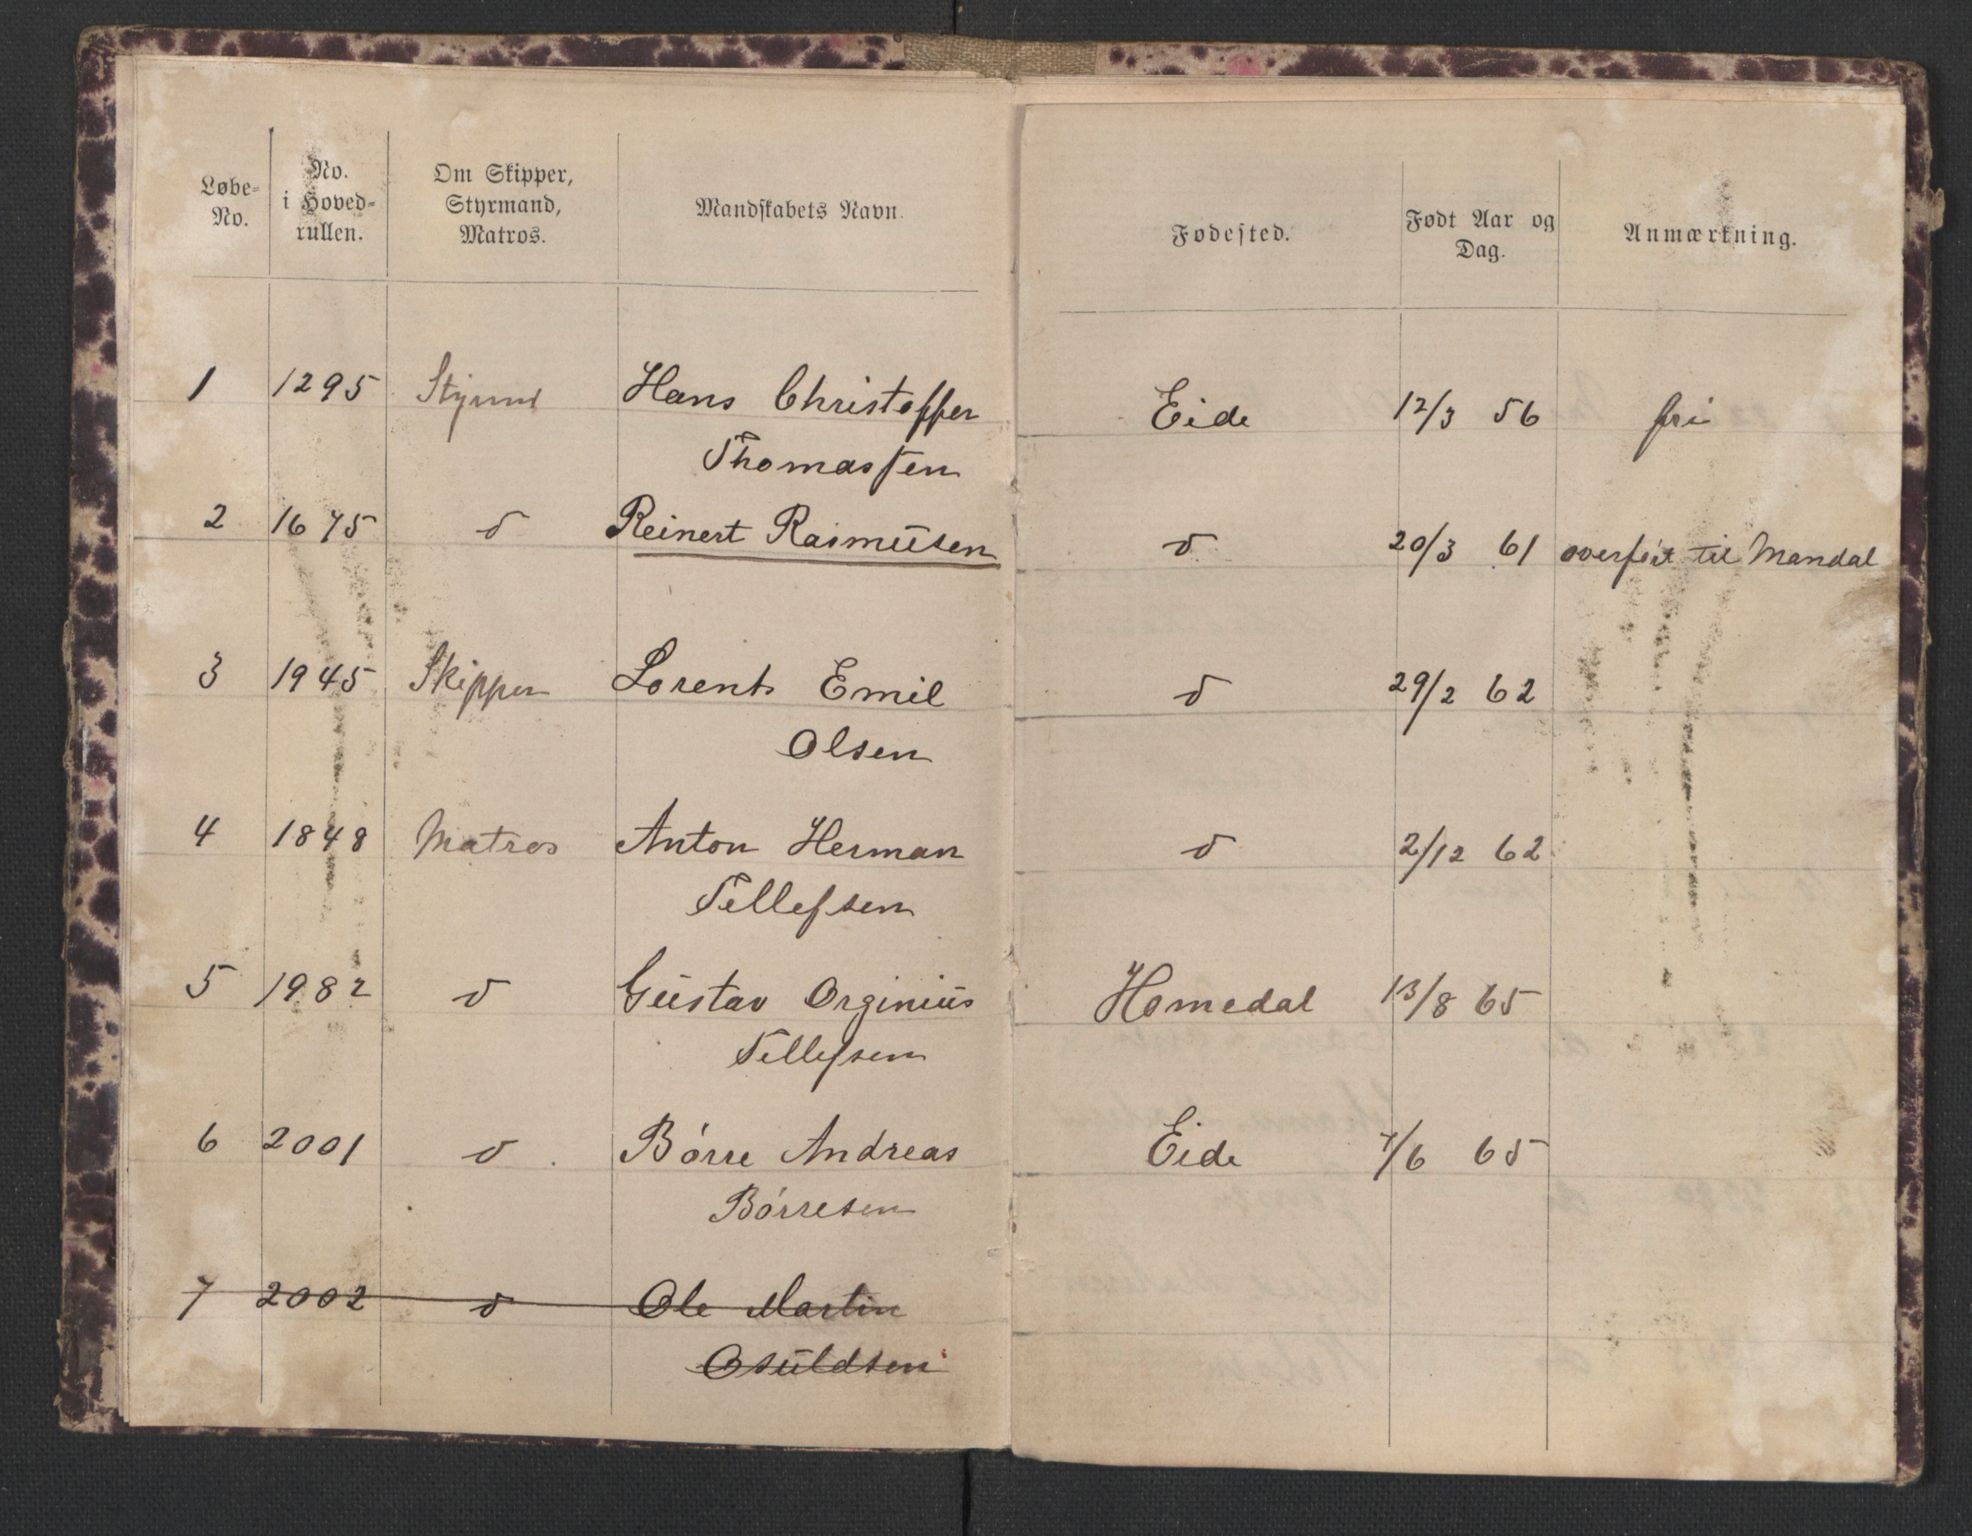 Løbe-No. No. i Hovedrullen. Om Skipper, Styrmand, Matros. Mandskabets Navn. Fødested. Født Aar og Dag. Anmærkning.
1 1295 Styrmd Hans Christoffer Eide 12/3 56 fri
Thomassen
2 1675 d Reinert Rasmusen d 20/3 61 overført til Mandal
3 1945 Skipper Lorents Emil d 29/2 62
Olsen
4 1848 Matros Anton Herman d 2/12 62
Tellefsen
5 1982 d Gustav Orginius Homedal 13/8 65
Tellefsen
6 2001 d Børre Andreas Eide 7/6 65
Børresen
7 2002 d Ole Martin
Osuldsen